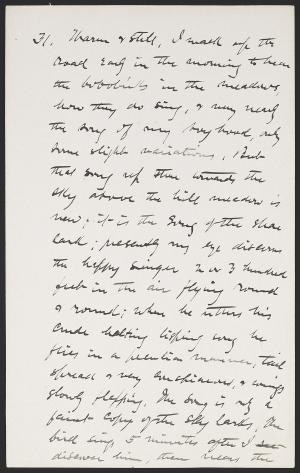 31. Warm & still, I walk up the
road early in the morning to hear
the bobolinks in the meadows,
how they do sing, & very nearly
the song of my boyhood, only
some slight variations. But
that song up there towards the
sky above the hill meadow is
new. it is the song of the shore
lark; presently my eye discerns
the happy singer 2 or 3 hundred
feet in the air flying round
& round; when he utters his
crude halting lisping song he
flies in a peculiar manner, tail
spread & very and wings
slowly flapping. The song is only a
faint copy of the sky lark, The
bird sings 5 minutes after I
discover him, then nears the